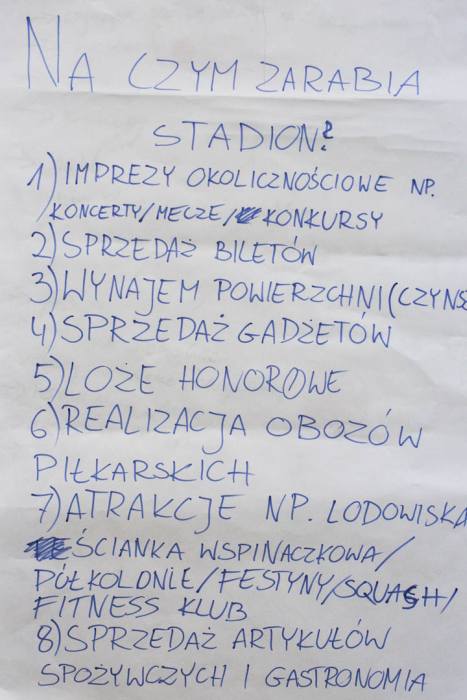 NA CZYM ZARABIA
STADION?
1) IMPREZY OKOLICZNOŚCIOWE NP.
KONCERTY/MECZE/ KONKURSY
2) SPRZEDAŻ BILETÓW
3) WYNAJEM POWIERZCHNI (CZYNS
4) SPRZEDAŻ GADŻETÓW
5) LOŻE HONOROWE
6) REALIZACJA OBOZÓW
PIŁKARSKICH
7) ATRAKCJE NP. LODOWISKA
ŚCIANKA WSPINACZKOWA/
PÓŁKOLONIE/FESTYNY/SQUASH/
FITNESS KLUB
8) SPRZEDAŻ ARTYKUŁÓW
SPOŻYWCZYCH I GASTRONOMIA